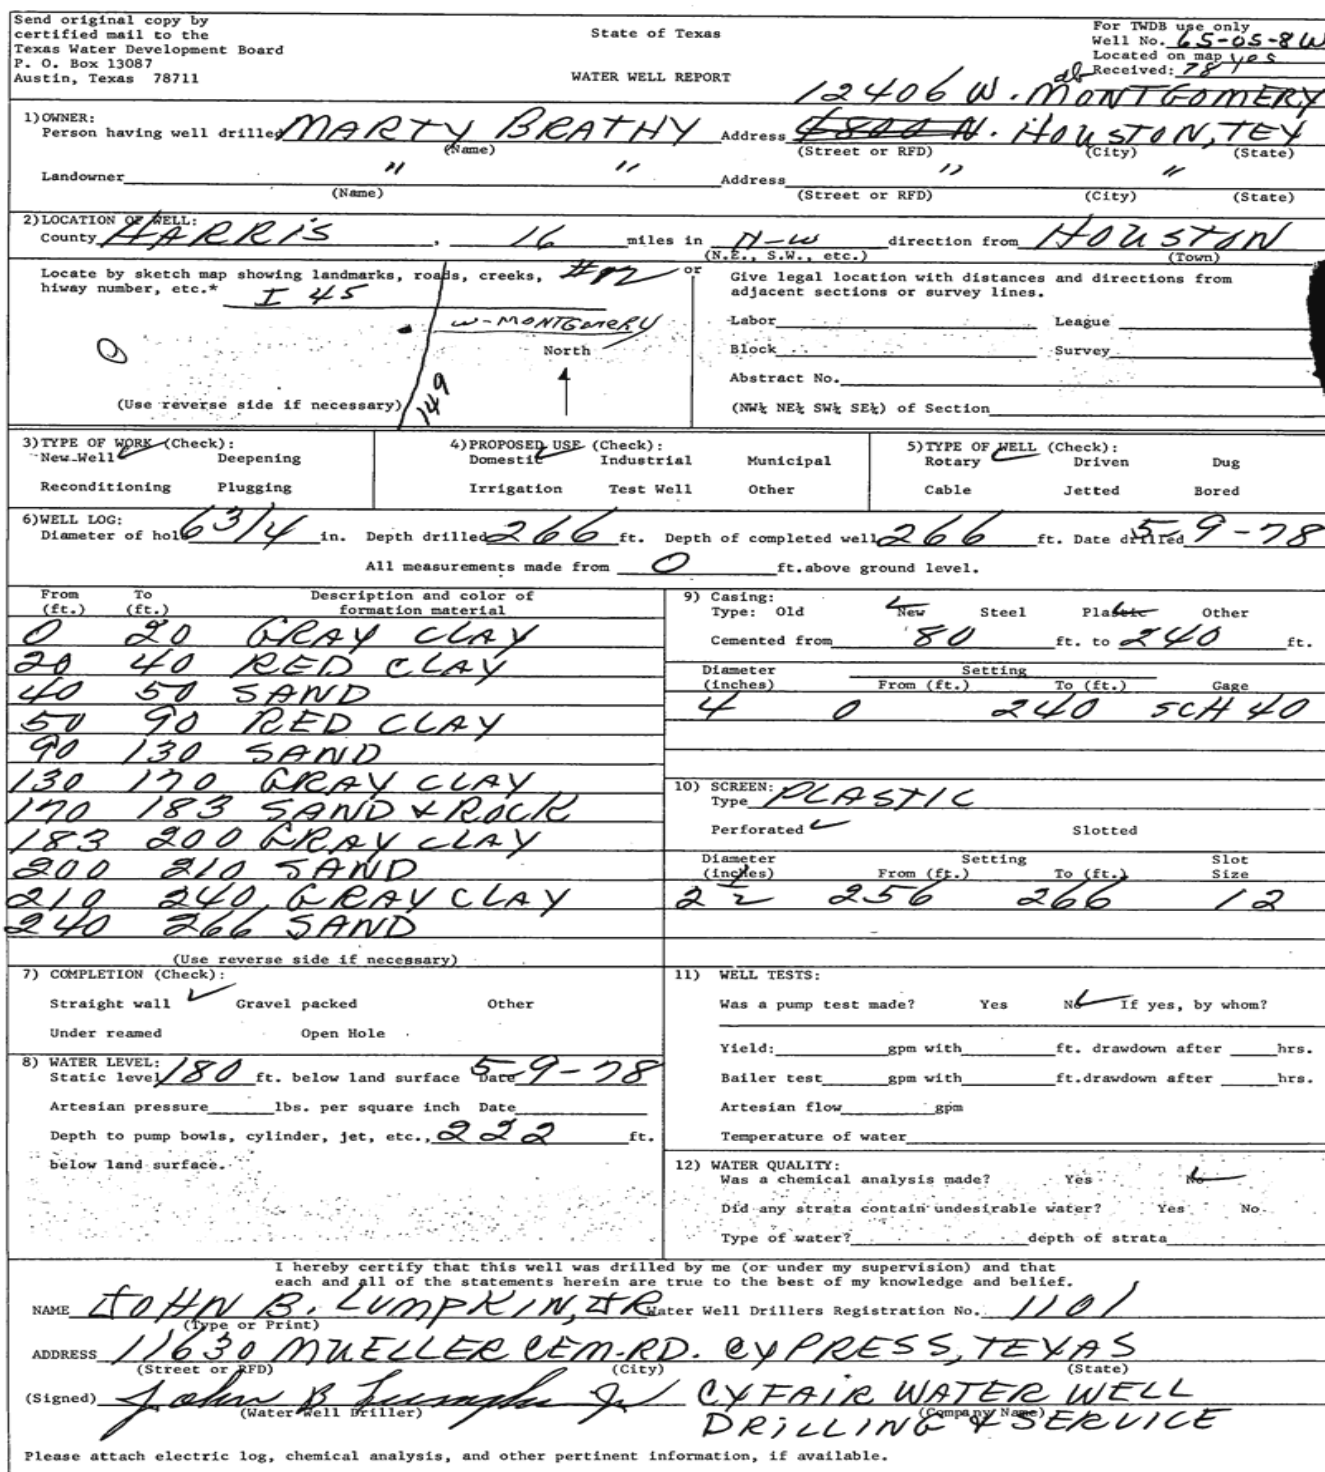 Send original copy by
certified mail to the
Texas Water Development Board
P. O. Box 13087
Austin, Texas 78711
State of Texas
WATER WELL REPORT
For TWDB use only
Well No. 65-05-8W
Located on map yes
Received: 78
12406 W. MONTGOMERY
1) OWNER:
Person having well drilled MARTY BRATHY Address N. HOUSTON, TEX
(Name) (Street or RFD) (City) (State)
Landowner " " Address " "
(Name) (Street or RFD) (City) (State)
2) LOCATION OF WELL:
County HARRIS, 16 miles in N-W direction from HOUSTON
(N.E., S.W., etc.) (Town)
Locate by sketch map showing landmarks, roads, creeks, or
hiway number, etc.*
I 45
W-MONTGOMERY
North
149
(Use reverse side if necessary)
Give legal location with distances and directions from
adjacent sections or survey lines.
Labor League
Block Survey
Abstract No.
(NW¼ NE¼ SW¼ SE¼) of Section
3) TYPE OF WORK (Check):
New Well ✓ Deepening
Reconditioning Plugging
4) PROPOSED USE (Check):
Domestic ✓ Industrial Municipal
Irrigation Test Well Other
5) TYPE OF WELL (Check):
Rotary ✓ Driven Dug
Cable Jetted Bored
6) WELL LOG:
Diameter of hole 6 3/4 in. Depth drilled 266 ft. Depth of completed well 266 ft. Date drilled 5-9-78
All measurements made from 0 ft. above ground level.
From To Description and color of
(ft.) (ft.) formation material
0 20 GRAY CLAY
20 40 RED CLAY
40 50 SAND
50 90 RED CLAY
90 130 SAND
130 170 GRAY CLAY
170 183 SAND & ROCK
183 200 GRAY CLAY
200 210 SAND
210 240 GRAY CLAY
240 266 SAND
(Use reverse side if necessary)
9) Casing:
Type: Old New ✓ Steel Plastic ✓ Other
Cemented from 80 ft. to 240 ft.
Diameter Setting
(inches) From (ft.) To (ft.) Gage
4 0 240 SCH 40
10) SCREEN:
Type PLASTIC
Perforated ✓ Slotted
Diameter Setting Slot
(inches) From (ft.) To (ft.) Size
2 1/2 256 266 12
7) COMPLETION (Check):
Straight wall ✓ Gravel packed Other
Under reamed Open Hole
8) WATER LEVEL:
Static level 180 ft. below land surface Date 5-9-78
Artesian pressure lbs. per square inch Date
Depth to pump bowls, cylinder, jet, etc., 222 ft.
below land surface.
11) WELL TESTS:
Was a pump test made? Yes No ✓ If yes, by whom?
Yield: gpm with ft. drawdown after hrs.
Bailer test gpm with ft. drawdown after hrs.
Artesian flow gpm
Temperature of water
12) WATER QUALITY:
Was a chemical analysis made? Yes No ✓
Did any strata contain undesirable water? Yes No
Type of water? depth of strata
I hereby certify that this well was drilled by me (or under my supervision) and that
each and all of the statements herein are true to the best of my knowledge and belief.
NAME JOHN B. LUMPKIN, JR Water Well Drillers Registration No. 1101
(Type or Print)
ADDRESS 11630 MUELLER CEM. RD. CYPRESS, TEXAS
(Street or RFD) (City) (State)
(Signed) John B Lumpkin Jr CYFAIR WATER WELL
(Water Well Driller) (Company Name)
DRILLING & SERVICE
Please attach electric log, chemical analysis, and other pertinent information, if available.